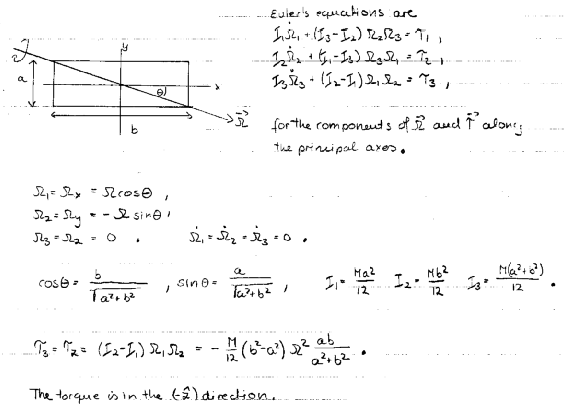 Euler's equations are
I₁Ω̇₁ + (I₃-I₂) Ω₂Ω₃ = τ₁ ,
I₂Ω̇₂ + (I₁-I₃) Ω₃Ω₁ = τ₂ ,
I₃Ω̇₃ + (I₂-I₁) Ω₁Ω₂ = τ₃ ,
y
a
θ
x
Ω⃗
b
for the components of Ω⃗ and τ⃗ along
the principal axes.
Ω₁ = Ωₓ = Ω cosθ ,
Ω₂ = Ω_y = - Ω sinθ ,
Ω₃ = Ω_z = 0 . Ω̇₁ = Ω̇₂ = Ω̇₃ = 0 .
cosθ = b/√(a²+b²) , sinθ = a/√(a²+b²) , I₁ = Ma²/12 I₂ = Mb²/12 I₃ = M(a²+b²)/12 .
τ₃ = τ_z = (I₂-I₁) Ω₁Ω₂ = - M/12 (b²-a²) Ω² ab/(a²+b²) .
The torque is in the (-ẑ) direction.